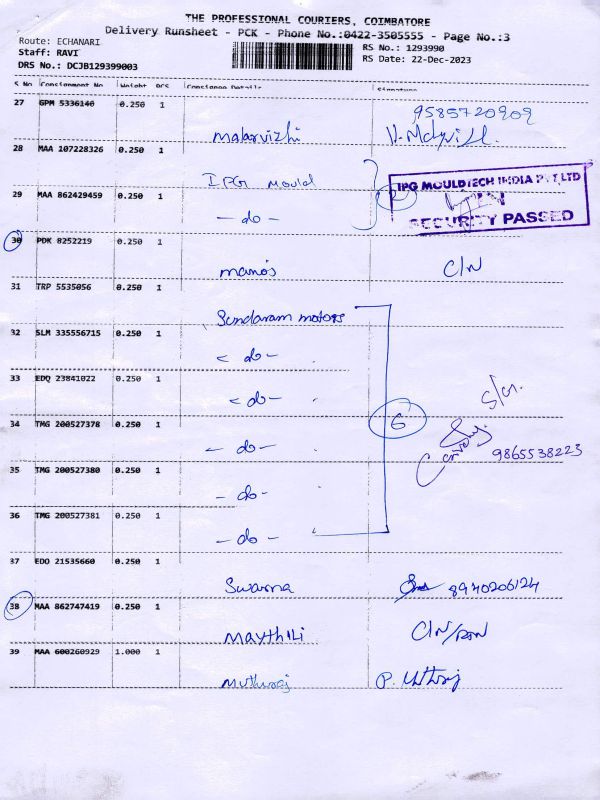 THE PROFESSIONAL COURIERS, COIMBATORE
Delivery Runsheet - PCK - Phone No.:0422-3505555 - Page No.:3
Route: ECHANARI
Staff: RAVI
DRS No.: DCJB129399003
RS No.: 1293990
RS Date: 22-Dec-2023
S No Consignment No Weight PCS Consignee Details Signature
27 GPM 5336140 0.250 1
9585720909
Malarvizhi
28 MAA 107228326 0.250 1
IPG Mould
29 MAA 862429459 0.250 1
2
IPG MOULDTECH INDIA PVT LTD
SECURITY PASSED
- do -
30 PDK 8252219 0.250 1
manoj C/N
31 TRP 5535056 0.250 1
Sundaram motors
32 SLM 335556715 0.250 1
- do -
33 EDQ 23841022 0.250 1
- do -
34 TMG 200527378 0.250 1
6
- do -
9865538223
35 TMG 200527380 0.250 1
- do -
36 TMG 200527381 0.250 1
- do -
37 EDO 21535660 0.250 1
Swarna 8940206124
38 MAA 862747419 0.250 1
MAYTHILI
39 MAA 600260929 1.000 1
Muthuraj